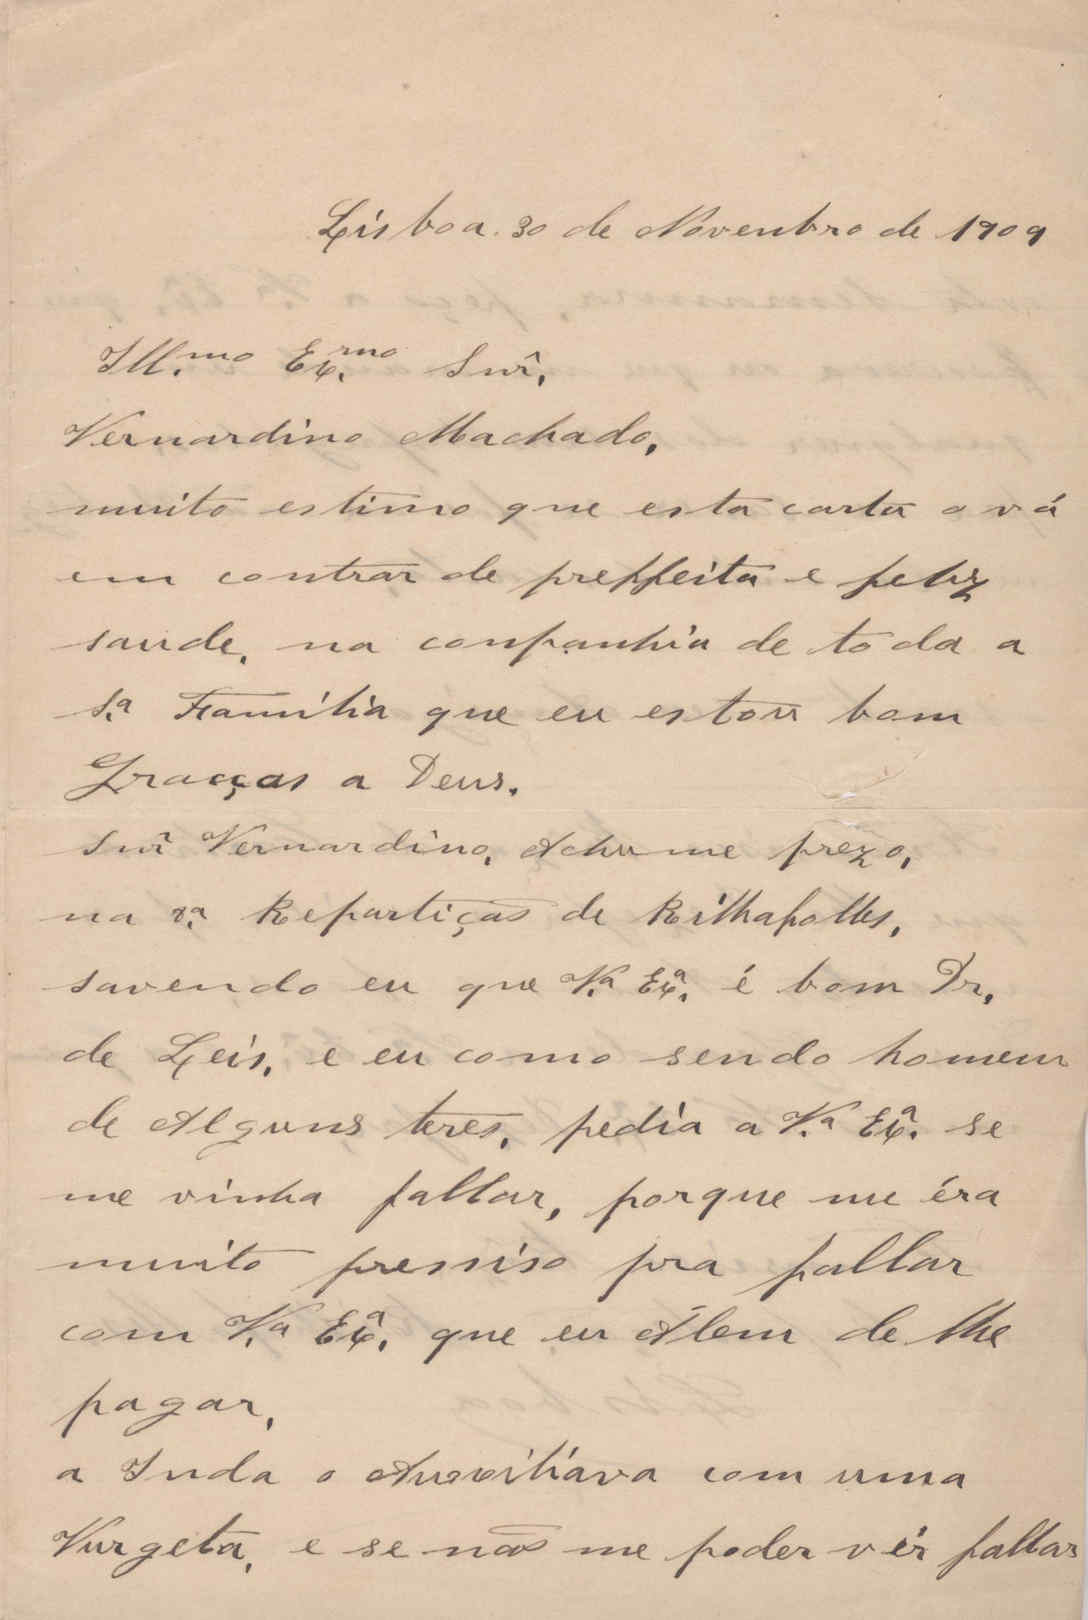 Lisboa. 30 de Novenbro de 1909
Ill.mo Ex.mo Snr.
Vernardino Machado,
muito estimo que esta carta o vá
em contrar de preffeita e feliz
saude, na conpanhia de to da a
S.a Familia que eu estou bom
Gracças a Deus.
Snr Vernardino, Acho me prezo,
na 8.a Repartição de Rilhafolles,
savendo eu que V.a Ex.a é bom Dr.
de Leis, e eu como sendo homem
de Alguns teres, pedia a V.a Ex.a se
me vinha fallar, porque me éra
muito pressiso pra fallar
com V.a Ex.a que eu Alem de lhe
pagar,
a Inda o Auxiliava com uma
Vurgeta, e se não me poder vir fallar